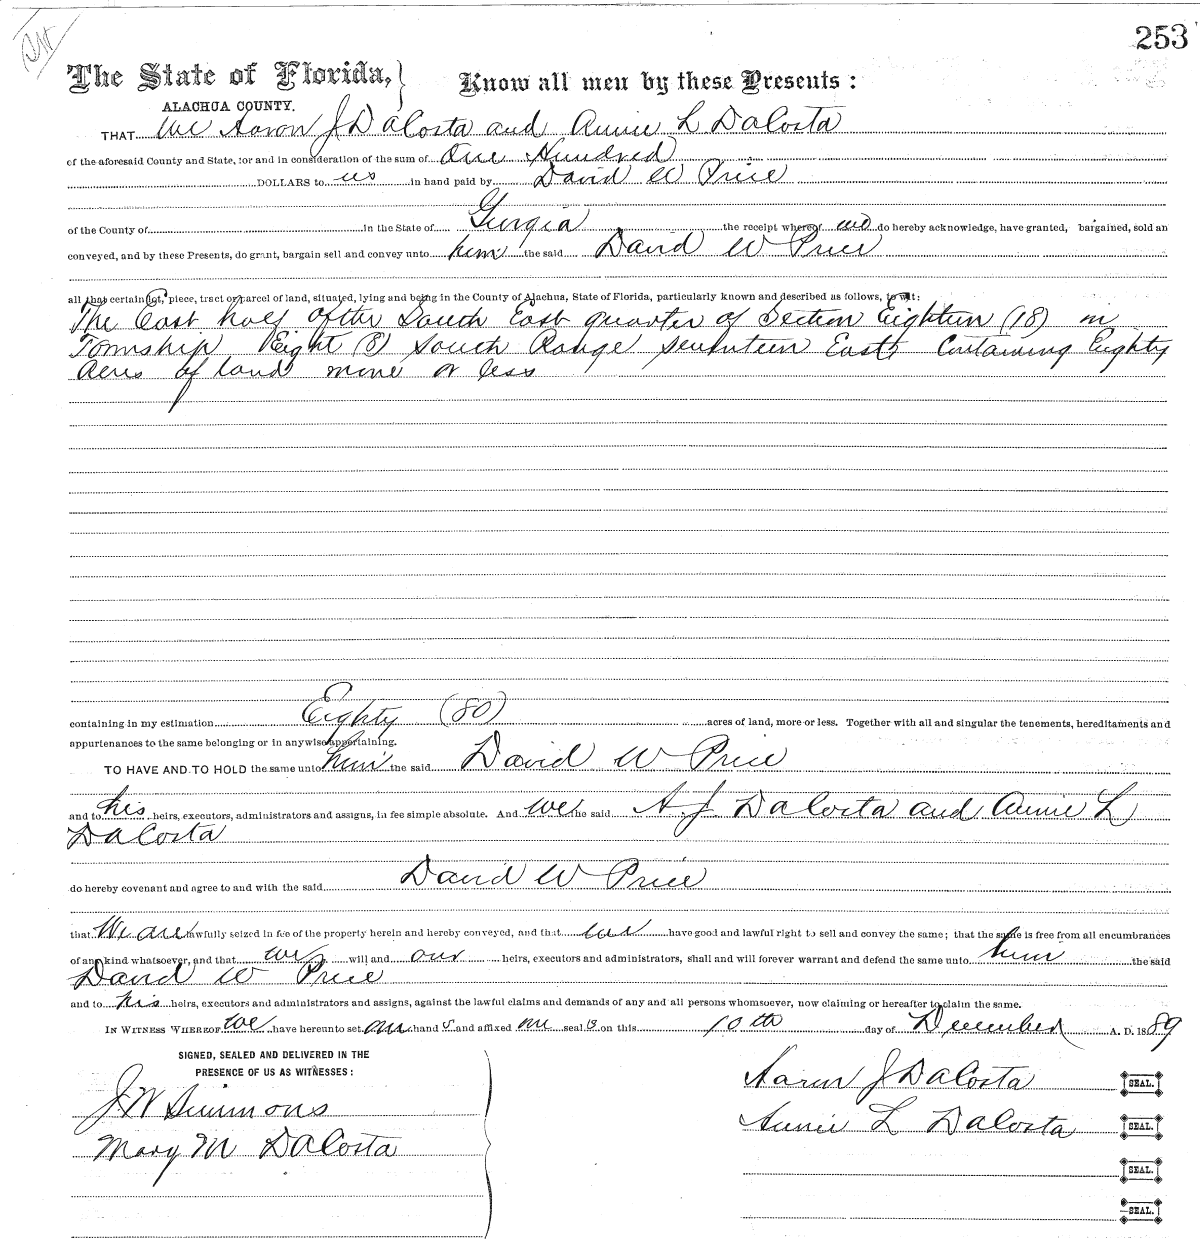 253
The State of Florida, } Know all men by these Presents:
ALACHUA COUNTY.
THAT We Aaron J DaCosta and Annie L DaCosta
of the aforesaid County and State, for and in consideration of the sum of One Hundred
DOLLARS to us in hand paid by David W Price
of the County of in the State of Georgia the receipt whereof we do hereby acknowledge, have granted, bargained, sold an
conveyed, and by these Presents, do grant, bargain sell and convey unto him the said David W Price
all that certain lot, piece, tract or parcel of land, situated, lying and being in the County of Alachua, State of Florida, particularly known and described as follows, to wit:
The East half of the South East quarter of Section Eighteen (18) in
Township Eight (8) South Range Seventeen East, Containing Eighty
Acres of land more or less
containing in my estimation Eighty (80) acres of land, more or less. Together with all and singular the tenements, hereditaments and
appurtenances to the same belonging or in anywise appertaining.
TO HAVE AND TO HOLD the same unto him the said David W Price
and to his heirs, executors, administrators and assigns, in fee simple absolute. And we he said A. J DaCosta and Annie L
DaCosta
do hereby covenant and agree to and with the said David W Price
that We are lawfully seized in fee of the property herein and hereby conveyed, and that we have good and lawful right to sell and convey the same; that the same is free from all encumbrances
of any kind whatsoever, and that we will and our heirs, executors and administrators, shall and will forever warrant and defend the same unto him the said
David W Price
and to his heirs, executors and administrators and assigns, against the lawful claims and demands of any and all persons whomsoever, now claiming or hereafter to claim the same.
IN WITNESS WHEREOF we have hereunto set our hand s and affixed our seal s on this 10th day of December A. D. 1889
SIGNED, SEALED AND DELIVERED IN THE
PRESENCE OF US AS WITNESSES:
Aaron J DaCosta SEAL.
J W Simmons
Annie L DaCosta SEAL.
Mary M DaCosta
SEAL.
SEAL.